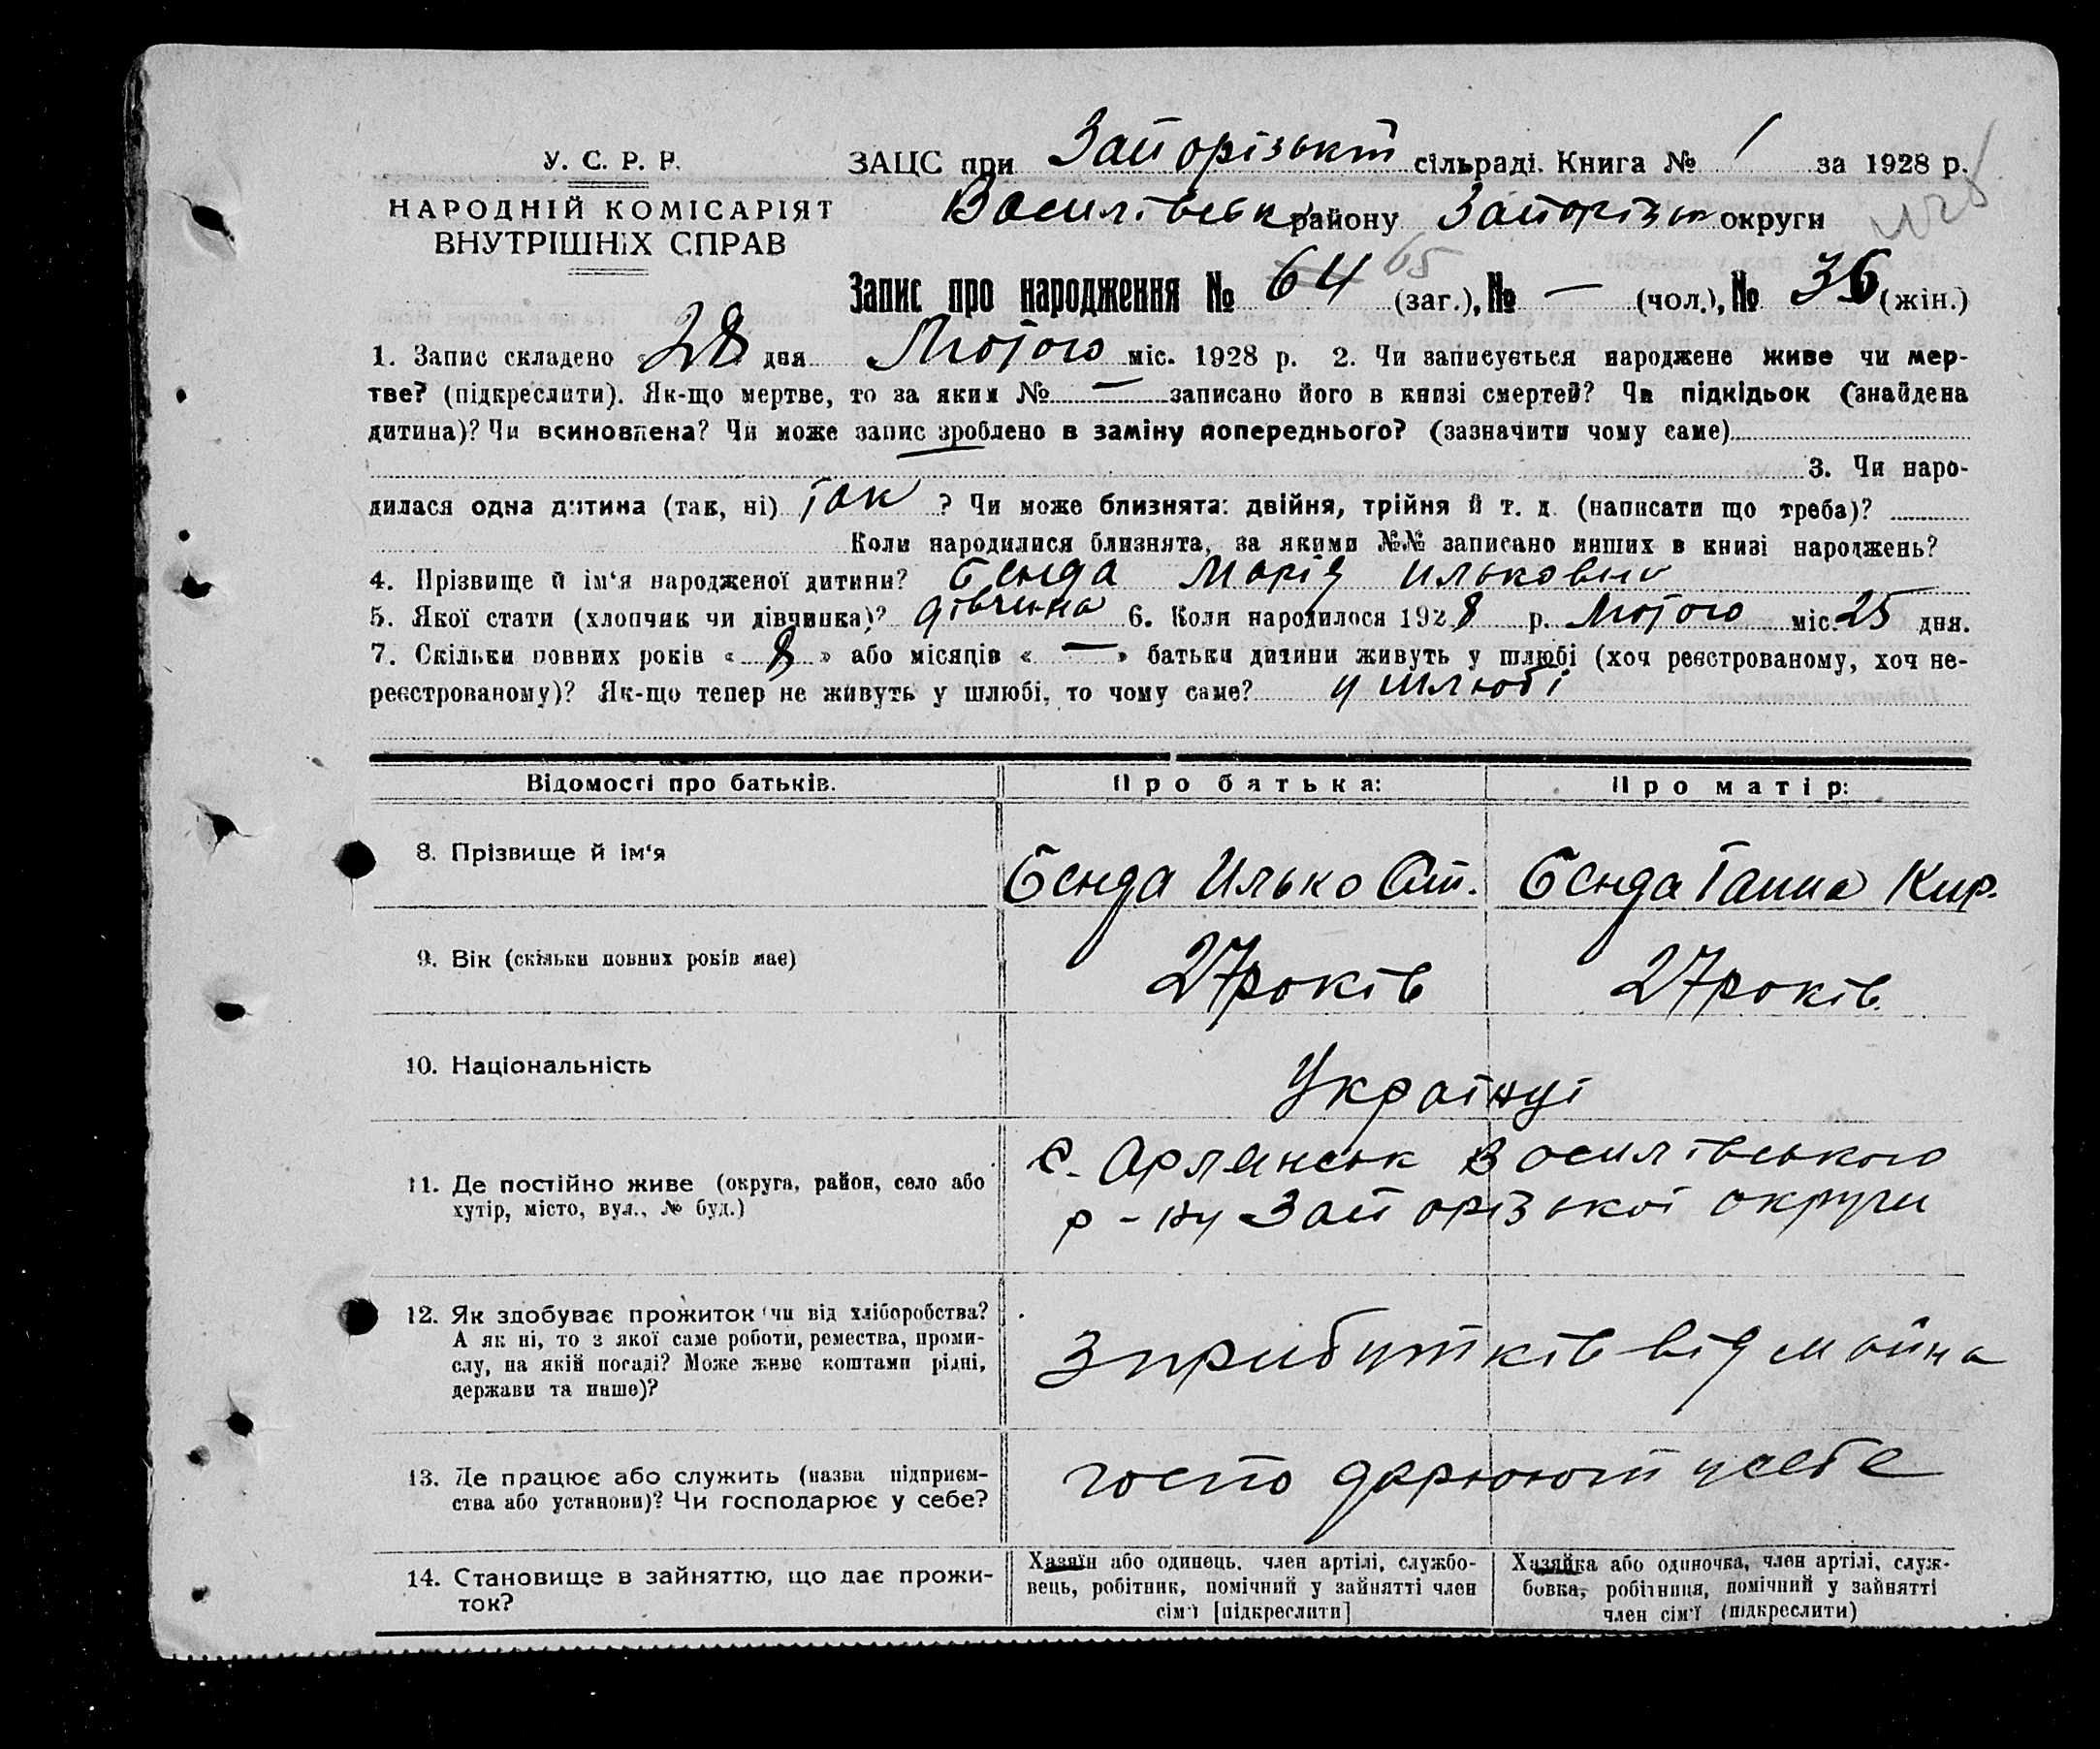 У. С. Р. Р.
НАРОДНІЙ КОМІСАРІЯТ
ВНУТРІШНіХ СПРАВ
ЗАЦС при Запорізькій сільраді. Книга № 1 за 1928 р.
Василівськ району Запорізьк округи
Запис про народження № 64 65 (заг.), № — (чол.), № 36 (жін.)
1. Запис складено « 28 дня Лютого міс. 1928 р. 2. Чи записується народжене живе чи мер-
тве? (підкреслити). Як-що мертве, то за яким № — записано його в книзі смертей? Чи підкідьок (знайдена
дитина)? Чи всиновлена? Чи може запис зроблено в заміну попереднього? (зазначити чому саме)
3. Чи наро-
дилася одна дитина (так, ні) так ? Чи може близнята: двійня, трійня й т. д. (написати що треба)?
Коли народилися близнята, за якими №№ записано инших в книзі народжень?
4. Прізвище й ім‘я народженої дитини? Бенда Марія Ильковна
5. Якої стати (хлопчик чи дівчинка)? дівчина 6. Коли народилося 1928 р. Лютого міс. 25 дня.
7. Скільки повних років « 8 » або місяців « — » батьки дитини живуть у шлюбі (хоч реєстрованому, хоч не-
реєстрованому)? Як-що тепер не живуть у шлюбі, то чому саме? у шлюбі
Відомості про батьків. Про батька: Про матір:
8. Прізвище й ім‘я Бенда Илько Бенда Ганна Кир.
9. Вік (скільки повних років має) 27 років 27 років.
10. Національність Українці
11. Де постійно живе (округа, район, село або
хутір, місто, вул., № буд.)
с. Орлянськ Василівського
р-ну Запорізької округи
12. Як здобуває прожиток чи від хліборобства?
А як ні, то з якої саме роботи, ремества, проми-
слу, на якій посаді? Може живе коштами рідні,
держави та инше)?
З прибутків від майна
13. Де працює або служить (назва підприєм-
ства або установи)? Чи господарює у себе?
господарюют у себе
14. Становище в зайняттю, що дає прожи-
ток?
Хазяїн або одинець, член артілі, службо-
вець, робітник, помічний у зайнятті член
сім‘ї [підкреслити]
Хазяйка або одиночка, член артілі, служ-
бовка, робітниця, помічний у зайнятті
член сім‘ї (підкреслити)